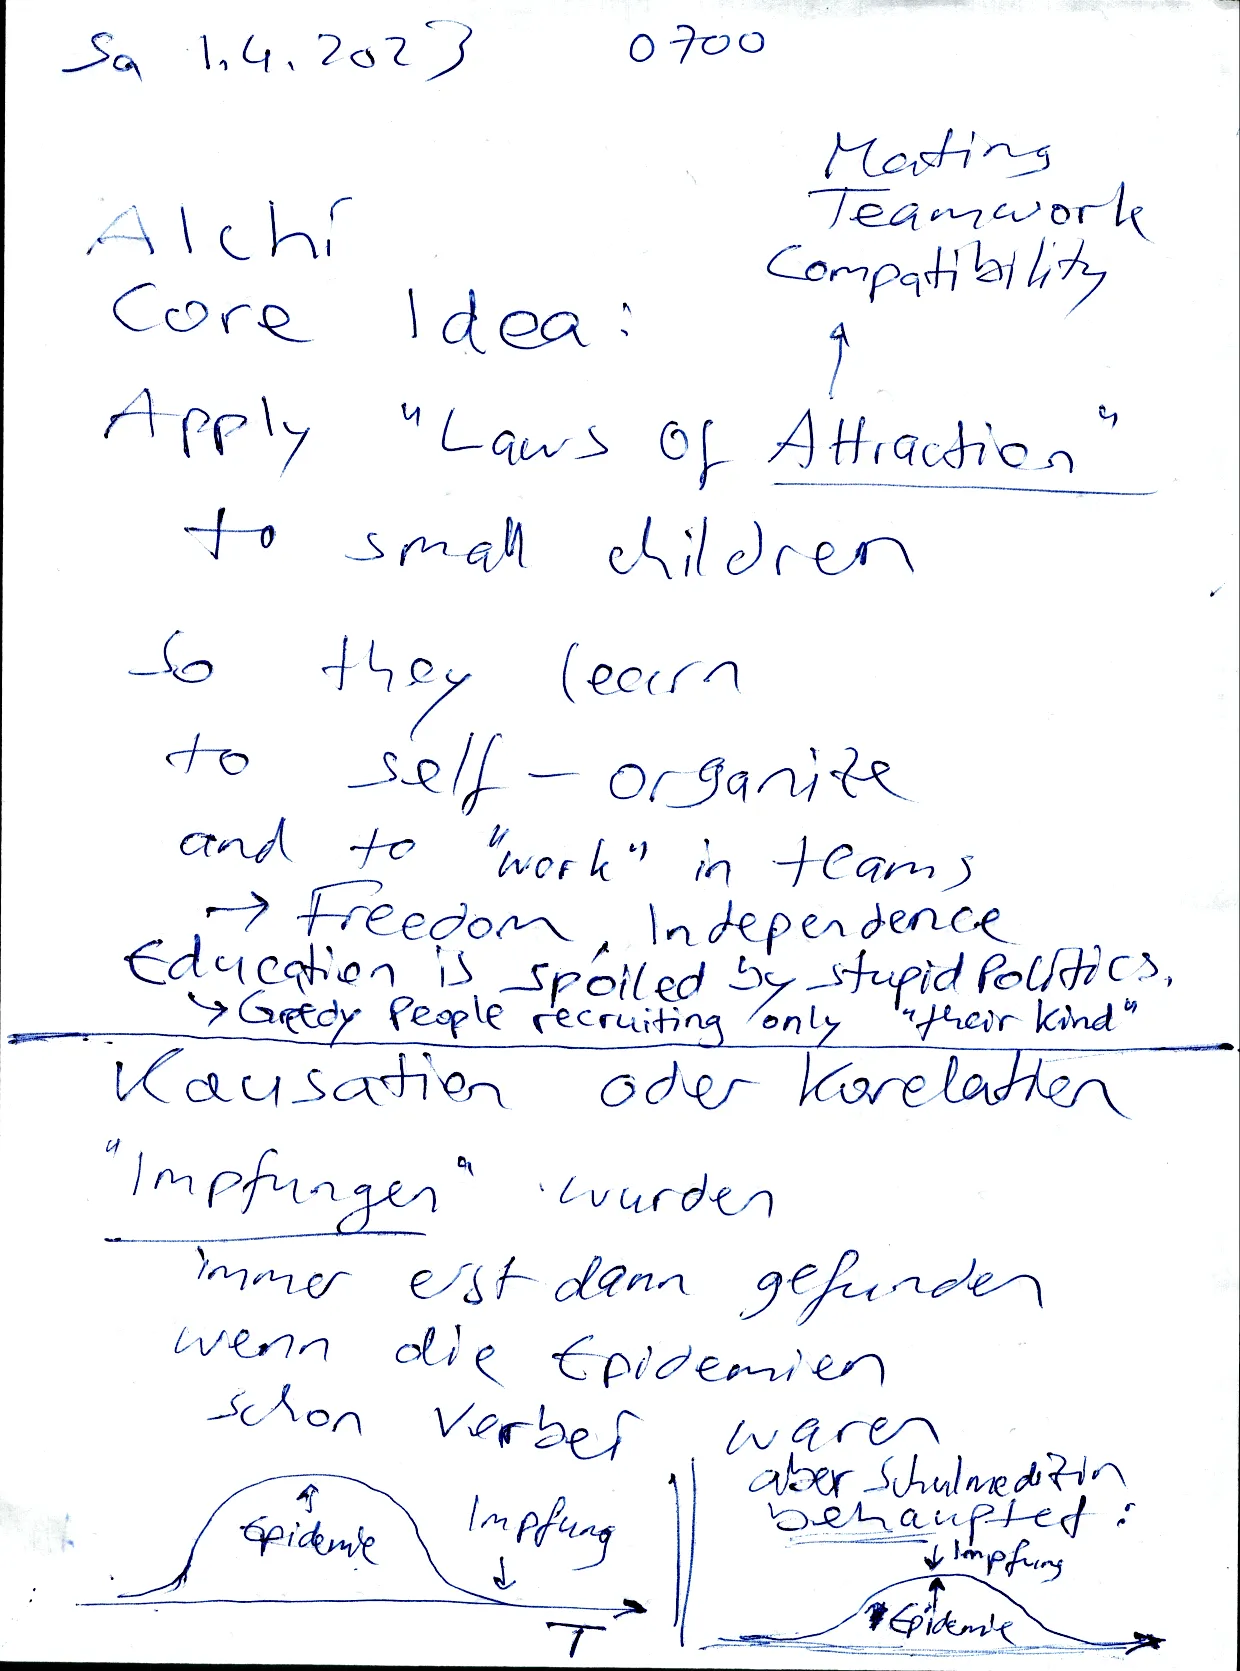 Sa 1.4.2023 0700
Mating
Teamwork
Compatibility
Alchi
Core Idea:
Apply "Laws of Attraction"
to small children
so they learn
to self-organize
and to "work" in teams
→ Freedom, Independence
Education is spoiled by stupid Politics.
↳ Greedy People recruiting only "their kind"
Kausation oder Korelation
"Impfungen" wurden
immer erst dann gefunden
wenn die Epidemien
schon Verbei waren
Epidemie
Impfung
T
aber Schulmedizin
behauptet:
Impfung
Epidemie